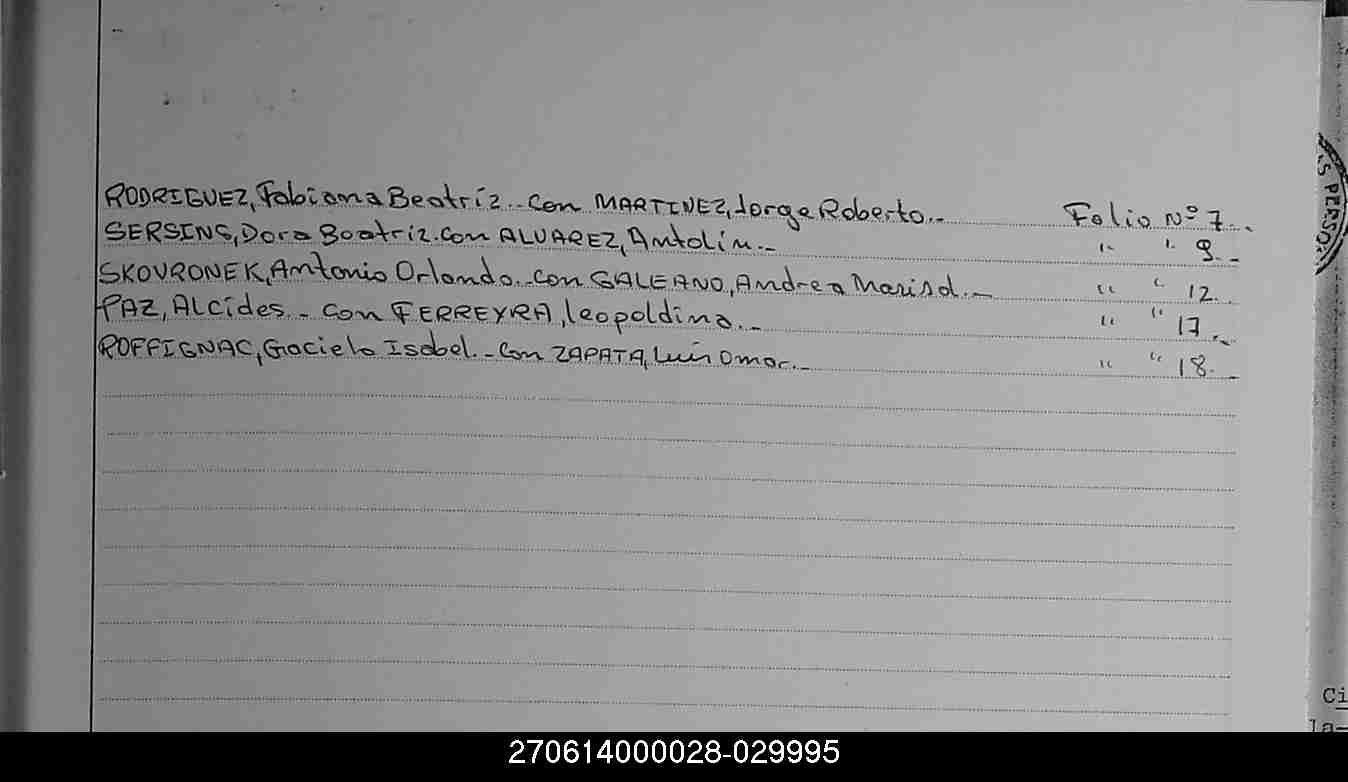 RODRIGUEZ, Fabiana Beatríz.. con MARTINEZ, Jorge Roberto.. Folio Nº 7..
SERSING, Dora Beatriz. con ALVAREZ, Antolin.- " " 9.-
SKOVRONEK, Antonio Orlando.. con GALEANO, Andrea Marisol.- " " 12.
PAZ, Alcídes.- con FERREYRA, leopoldina.- " " 17.-
ROFFIGNAC, Graciela Isabel.- con ZAPATA, Luis Omar.- " " 18.-
S PERSO
Ci
la-
270614000028-029995